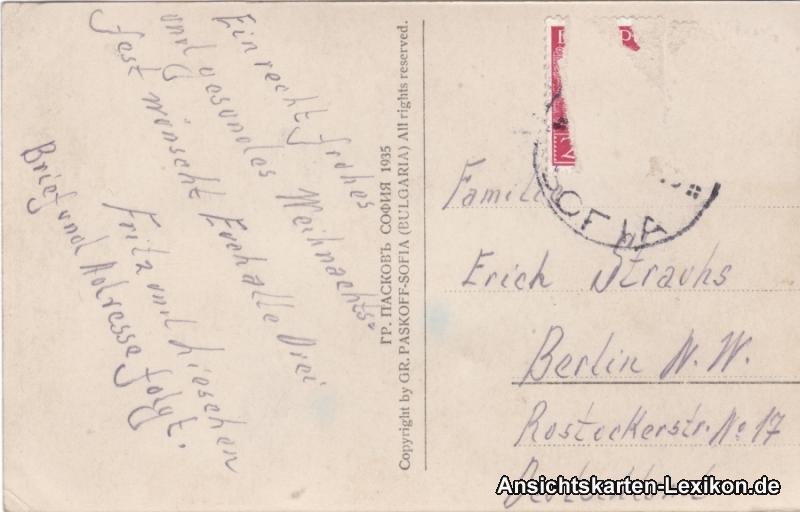 Ein recht frohes
und gesundes Weihnachts-
fest wünscht Euch alle Drei
Fritz und Lieschen
Brief und Adresse folgt.
ГР. ПАСКОВЪ СОФИЯ 1935
Copyright by GR. PASKOFF-SOFIA (BULGARIA) All rights reserved.
SOFIA
Famili
Erich Strauhs
Berlin N.W.
Rostockerstr. No 17
Deutschland
Ansichtskarten-Lexikon.de